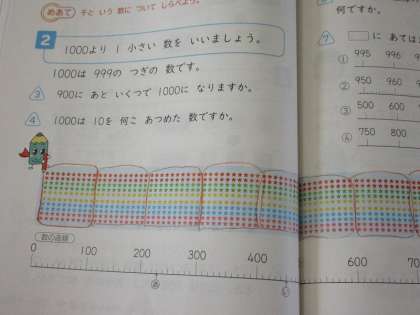 めあて 千と いう 数に ついて しらべよう。
2 1000より 1 小さい 数を いいましょう。
1000は 999の つぎの 数です。
3 900に あと いくつで 1000に なりますか。
4 1000は 10を 何こ あつめた 数ですか。
数の直線
0 100 200 300 400 600
あ
何ですか。
7 □に あては
① 995 996
② 950 960
③ 500 600
④ 750 800